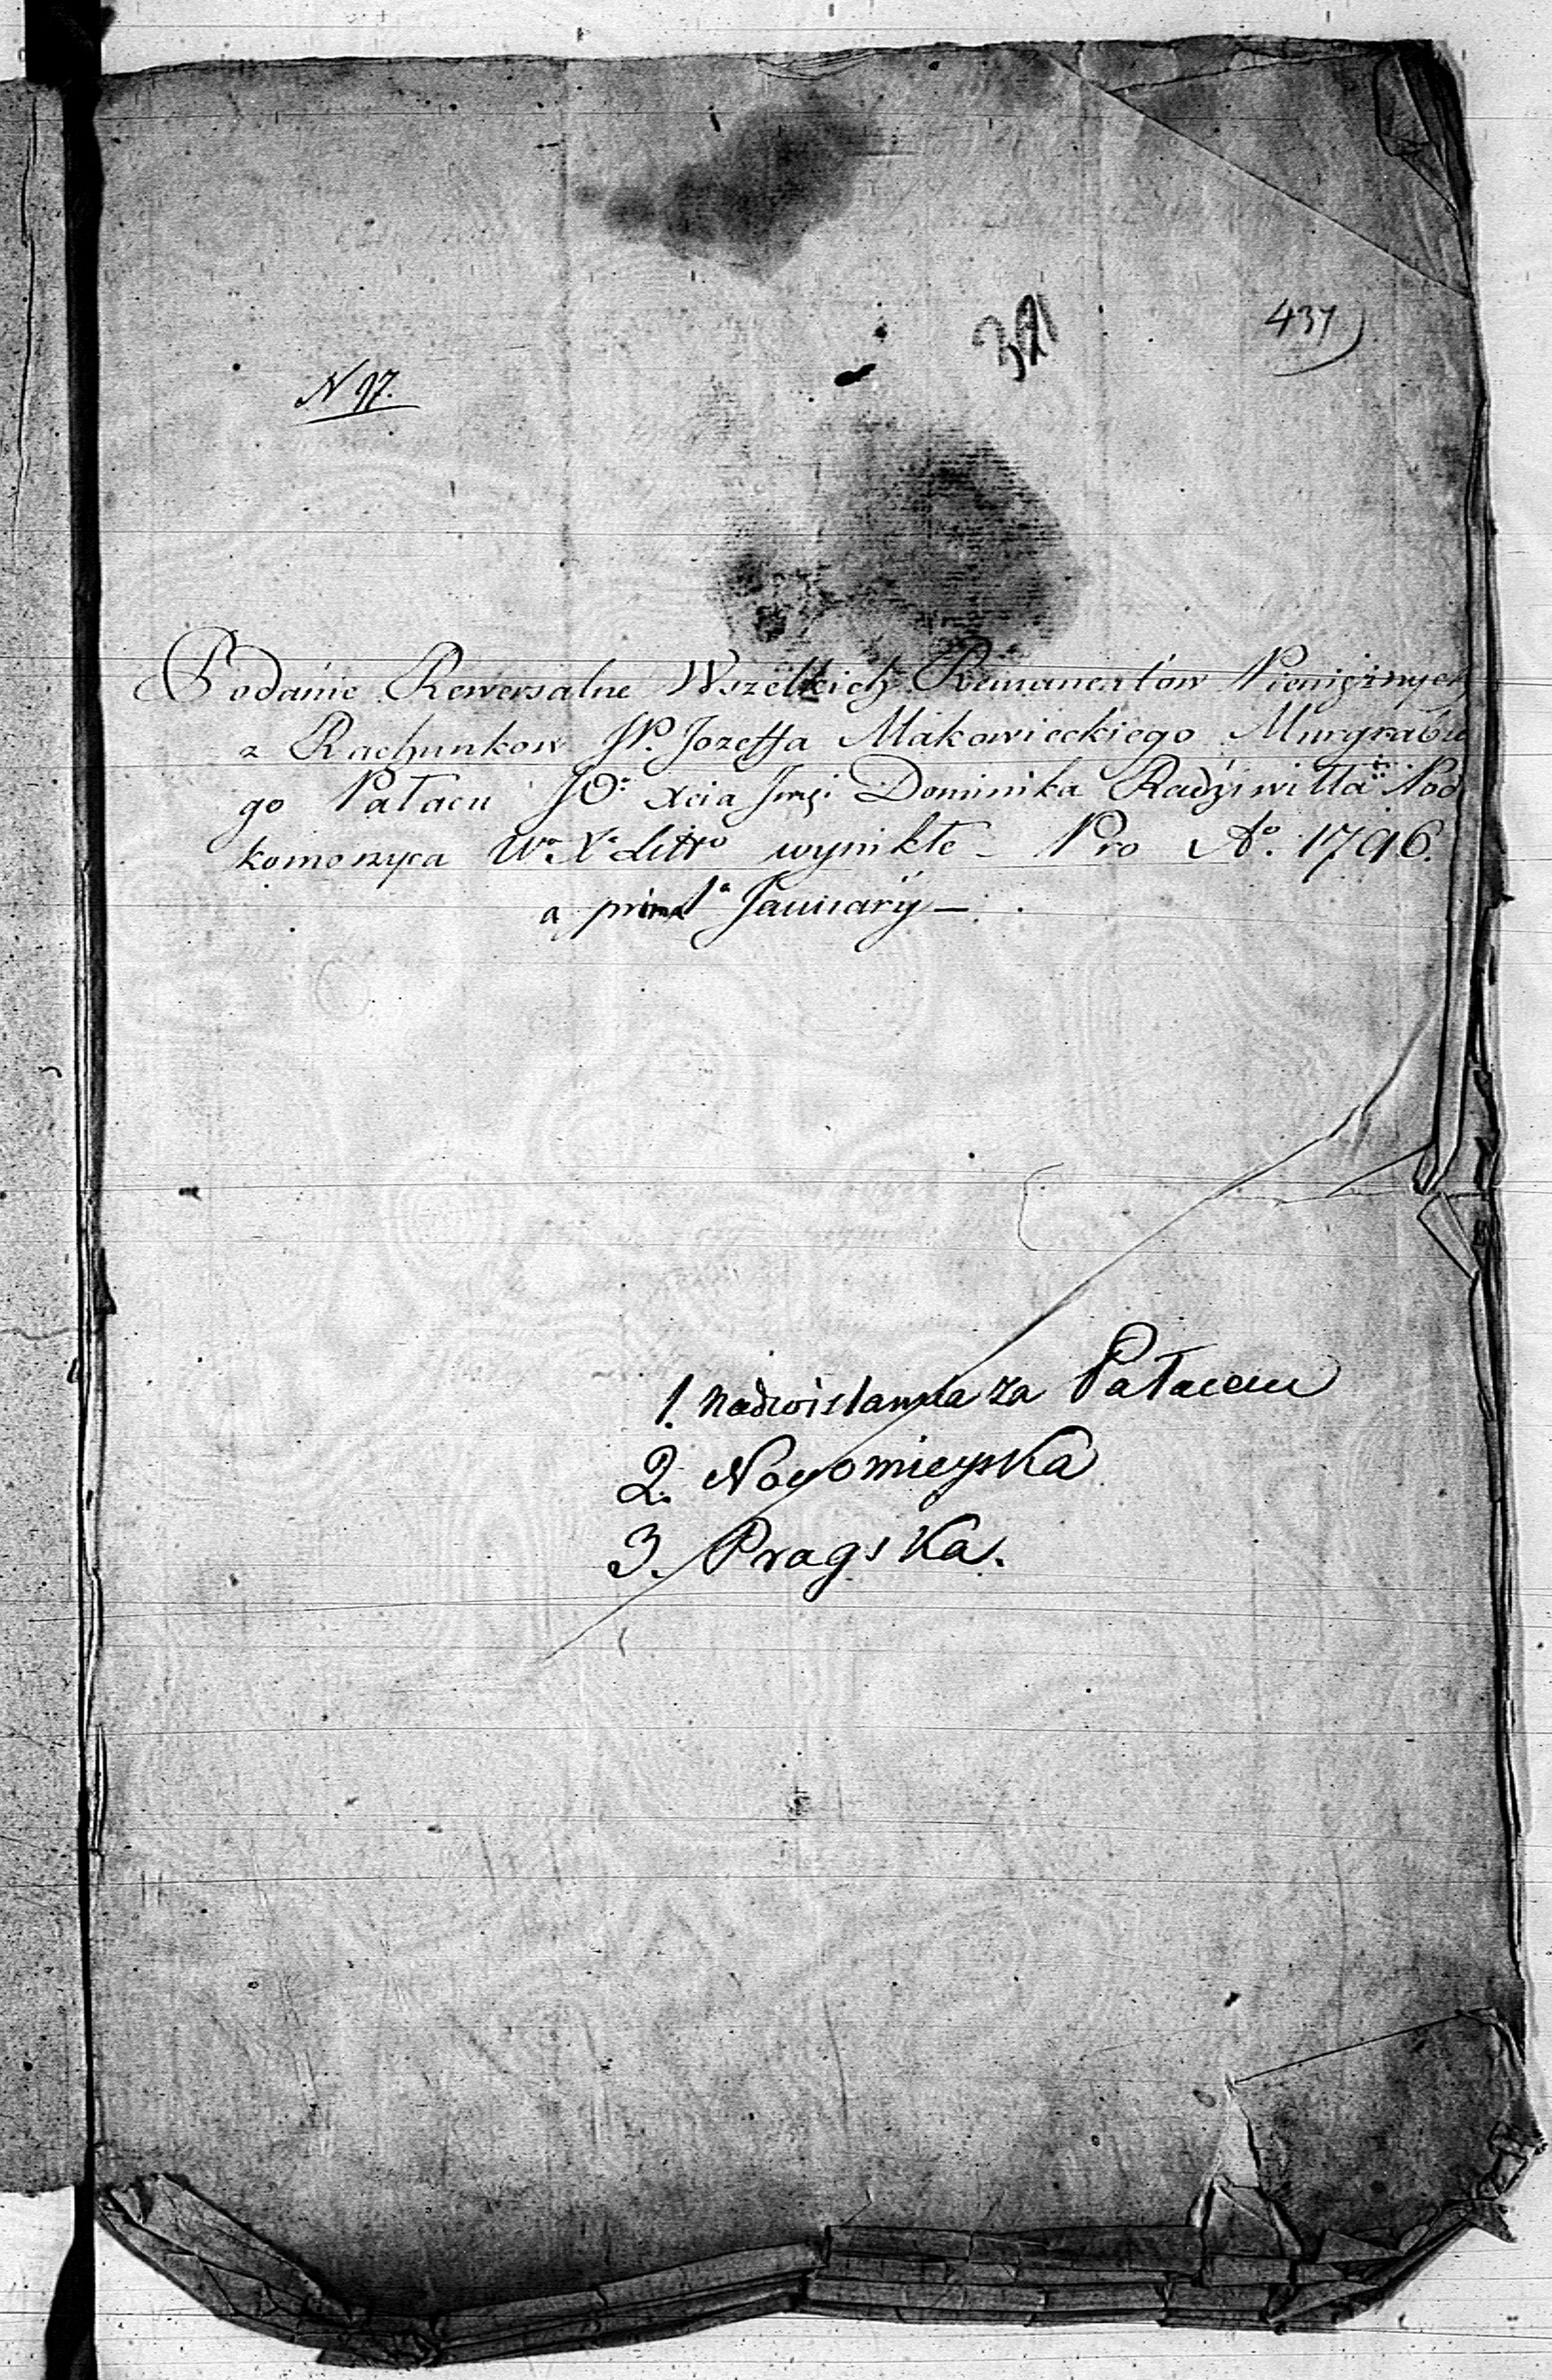 437
N 17.
Podanie Rewersalne Wszelkich Remanentow Pieniężnych
z Rachunkow JP. Jozeffa Makowieckiego Murgrabie
go Pałacu JO: Xcia Jmći Dominika Radziwiłła Pod
komorzyca Wo Xo Litto wynikłe - Pro Ao. 1796.
a prima Januarÿ -
1. nadwislanna za Pałacem
2. Nowomieyska
3. Pragska.